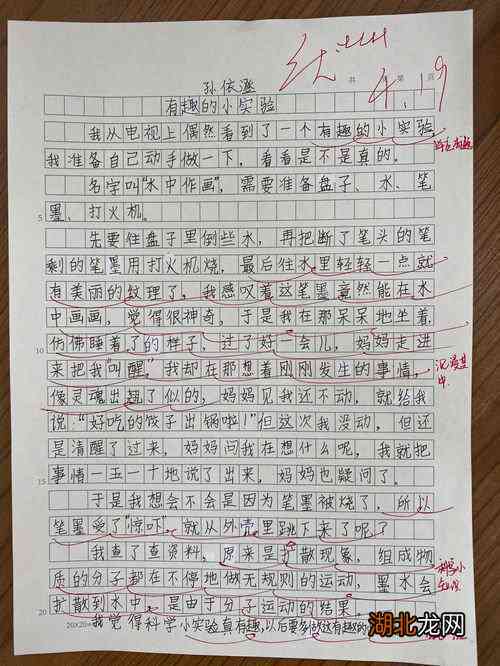 优 4.19
共 第 页
孙依涵
有趣的小实验
我从电视上偶然看到了一个有趣的小实验
我准备自己动手做一下，看看是不是真的。
名字叫“水中作画”，需要准备盘子、水、笔
5 墨、打火机。
先要住盘子里倒些水，再把断了笔头的笔
剩的笔墨用打火机烧，最后往水里轻轻一点就
有美丽的纹理了，我感叹着这笔墨竟然能在水
中画画，觉得很神奇。于是我在那呆呆地坐着，
仿佛睡着了的样子，过了好一会儿，妈妈走进
来把我“叫醒”，我却在那想着刚刚发生的事情，
像灵魂出翘了似的，妈妈见我还不动，就给我
说：“好吃的饺子出锅啦！”但这次我没动，但还
是清醒了过来，妈妈问我在想什么呢，我就把
15 事情一五一十地说了出来，妈妈也疑问了。
于是我想会不会是因为笔墨被烧了，所以
笔墨受了“惊吓”，就从外壳里跳下来了呢？
我查了查资料，原来是扩散现象，组成物
质的分子都在不停地做无规则的运动，墨水会
20 扩散到水中，是由于分子运动的结果。
20X20= 我觉得科学小实验真有趣，以后要多做这有趣的
湖北龙网